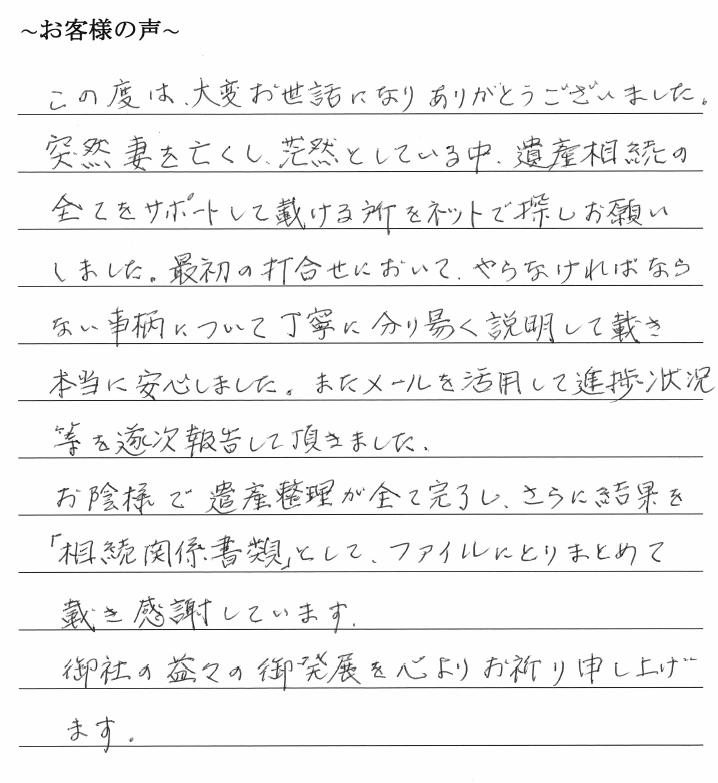 ~お客様の声~
この度は、大変お世話になりありがとうございました。
突然妻を亡くし、茫然としている中、遺産相続の
全てをサポートして戴ける所をネットで探しお願い
しました。最初の打合せにおいて、やらなければなら
ない事柄について丁寧に分り易く説明して戴き
本当に安心しました。またメールを活用して進捗状況
等を逐次報告して頂きました。
お陰様で遺産整理が全て完了し、さらに結果を
「相続関係書類」として、ファイルにとりまとめて
戴き感謝しています。
御社の益々の御発展を心よりお祈り申し上げ
ます。